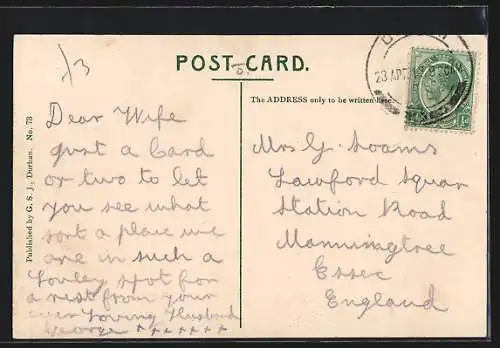 POST CARD.
The ADDRESS only to be written here.
Published by G. S. J., Durban. No. 73
Dear Wife
Just a Card
or two to let
you see what
sort a place we
are in such a
Lovley spot for
a rest from your
ever Loving Husband
George + + + + + + +
Mrs G. Soams
Lawford Squar
Station Road
Manningtree
Essec
England